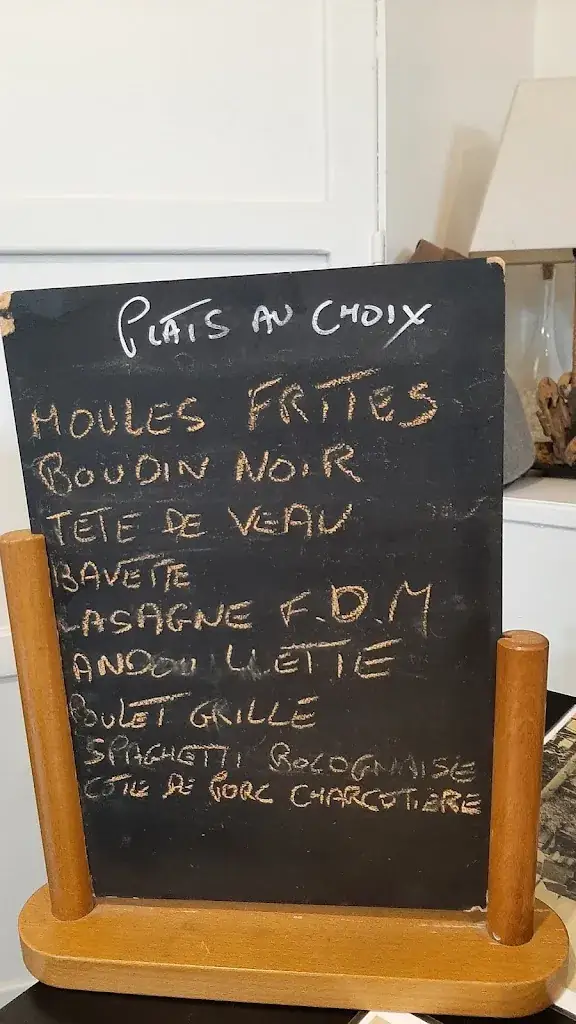 PLATS AU CHOIX
MOULES FRITES
BOUDIN NOIR
TETE DE VEAU
BAVETTE
LASAGNE F.D.M
ANDOUILLETTE
POULET GRILLE
SPAGHETTI BOLOGNAISE
COTE DE PORC CHARCUTIERE